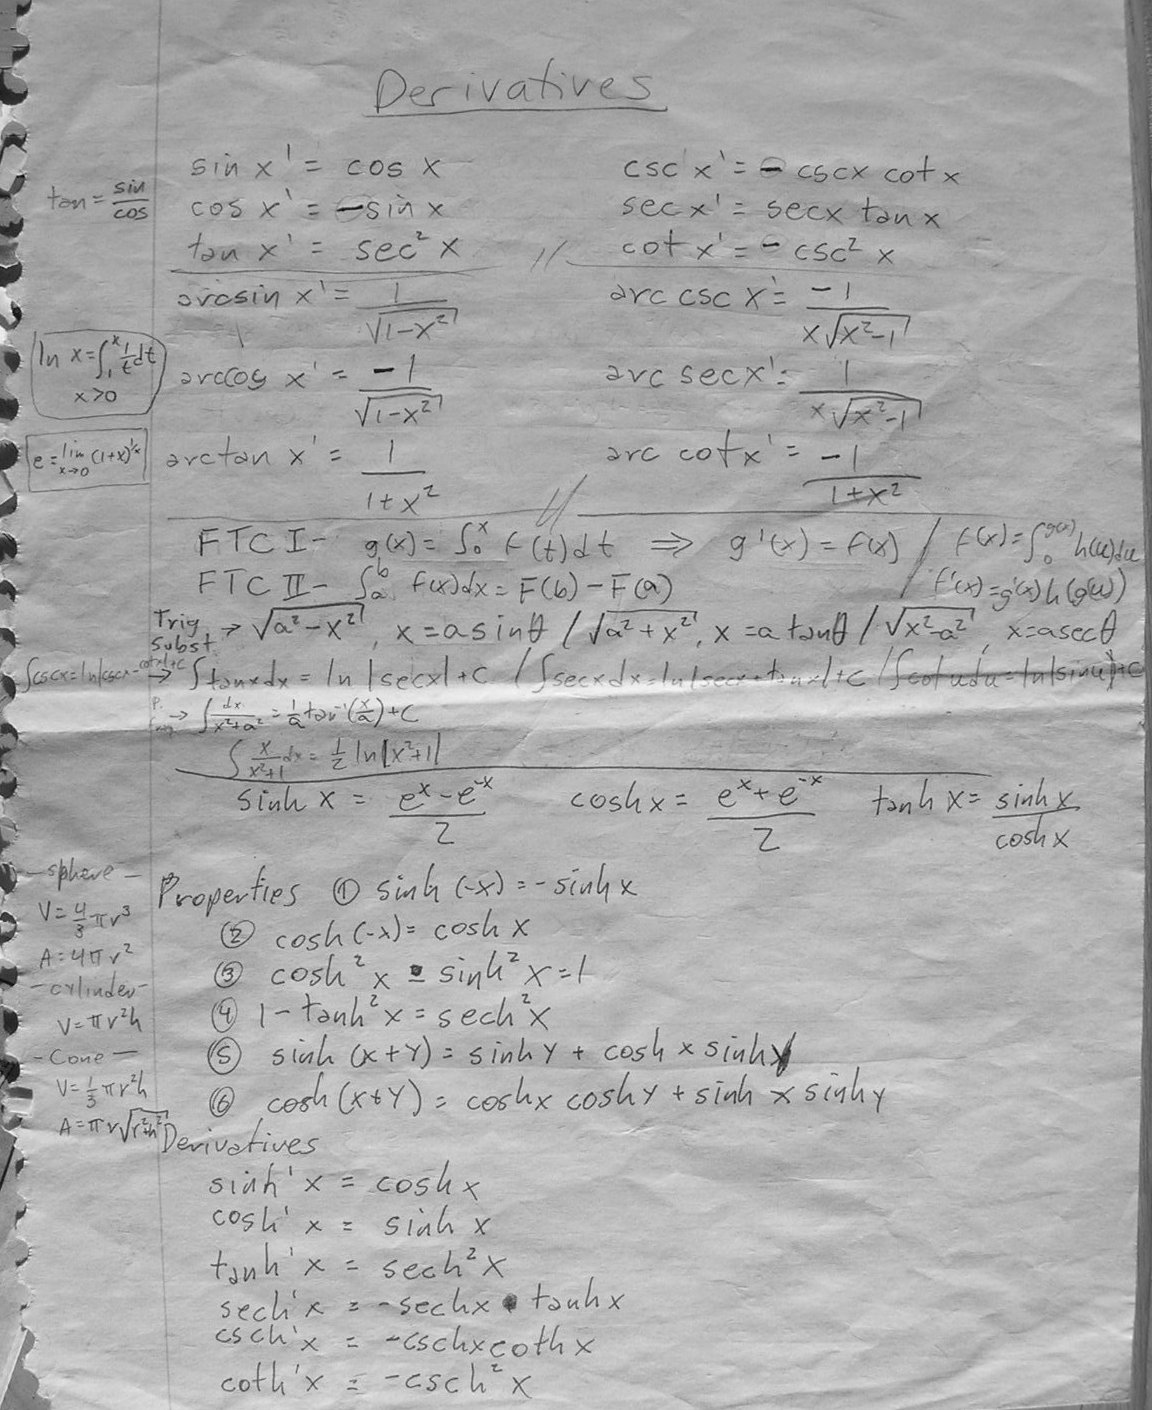 Derivatives
sin x' = cos x
csc x' = - cscx cot x
tan = sin/cos
cos x' = -sin x
sec x' = secx tan x
tan x' = sec² x //
cot x' = - csc² x
arcsin x' = 1/√(1-x²)
arc csc x' = -1/(x√(x²-1))
ln x = ∫₁ˣ 1/t dt
x>0
arccos x' = -1/√(1-x²)
arc sec x' = 1/(x√(x²-1))
e = lim x→0 (1+x)^(1/x)
arctan x' = 1/(1+x²)
arc cot x' = -1/(1+x²)
//
FTC I - g(x) = ∫₀ˣ f(t)dt ⇒ g'(x) = f(x) / f(x) = ∫₀^g(x) h(u)du
FTC II - ∫ₐᵇ f(x)dx = F(b) - F(a) / f'(x) = g'(x)h(g(x))
Trig Subst. → √(a²-x²), x = a sinθ / √(a²+x²), x = a tanθ / √(x²-a²), x = a secθ
∫cscx = ln|cscx - cotx|+C → ∫tanxdx = ln|secx|+C / ∫secxdx = ln|secx+tanx|+C / ∫cotudu = ln|sinu|+C
→ ∫dx/(x²+a²) = 1/a tan⁻¹(x/a)+C
∫x/(x²+1) dx = 1/2 ln|x²+1|
sinh x = (eˣ - e⁻ˣ)/2 cosh x = (eˣ + e⁻ˣ)/2 tanh x = sinh x/cosh x
- sphere -
V = 4/3 πr³
A = 4πr²
- cylinder -
V = πr²h
- Cone -
V = 1/3 πr²h
A = πr√(r²+h²)
Properties ① sinh (-x) = - sinh x
② cosh (-x) = cosh x
③ cosh² x - sinh² x = 1
④ 1 - tanh² x = sech² x
⑤ sinh (x+y) = sinh y + cosh x sinh y
⑥ cosh (x+y) = cosh x cosh y + sinh x sinh y
Derivatives
sinh' x = cosh x
cosh' x = sinh x
tanh' x = sech² x
sech' x = -sech x • tanh x
csch' x = -csch x coth x
coth' x = -csch² x